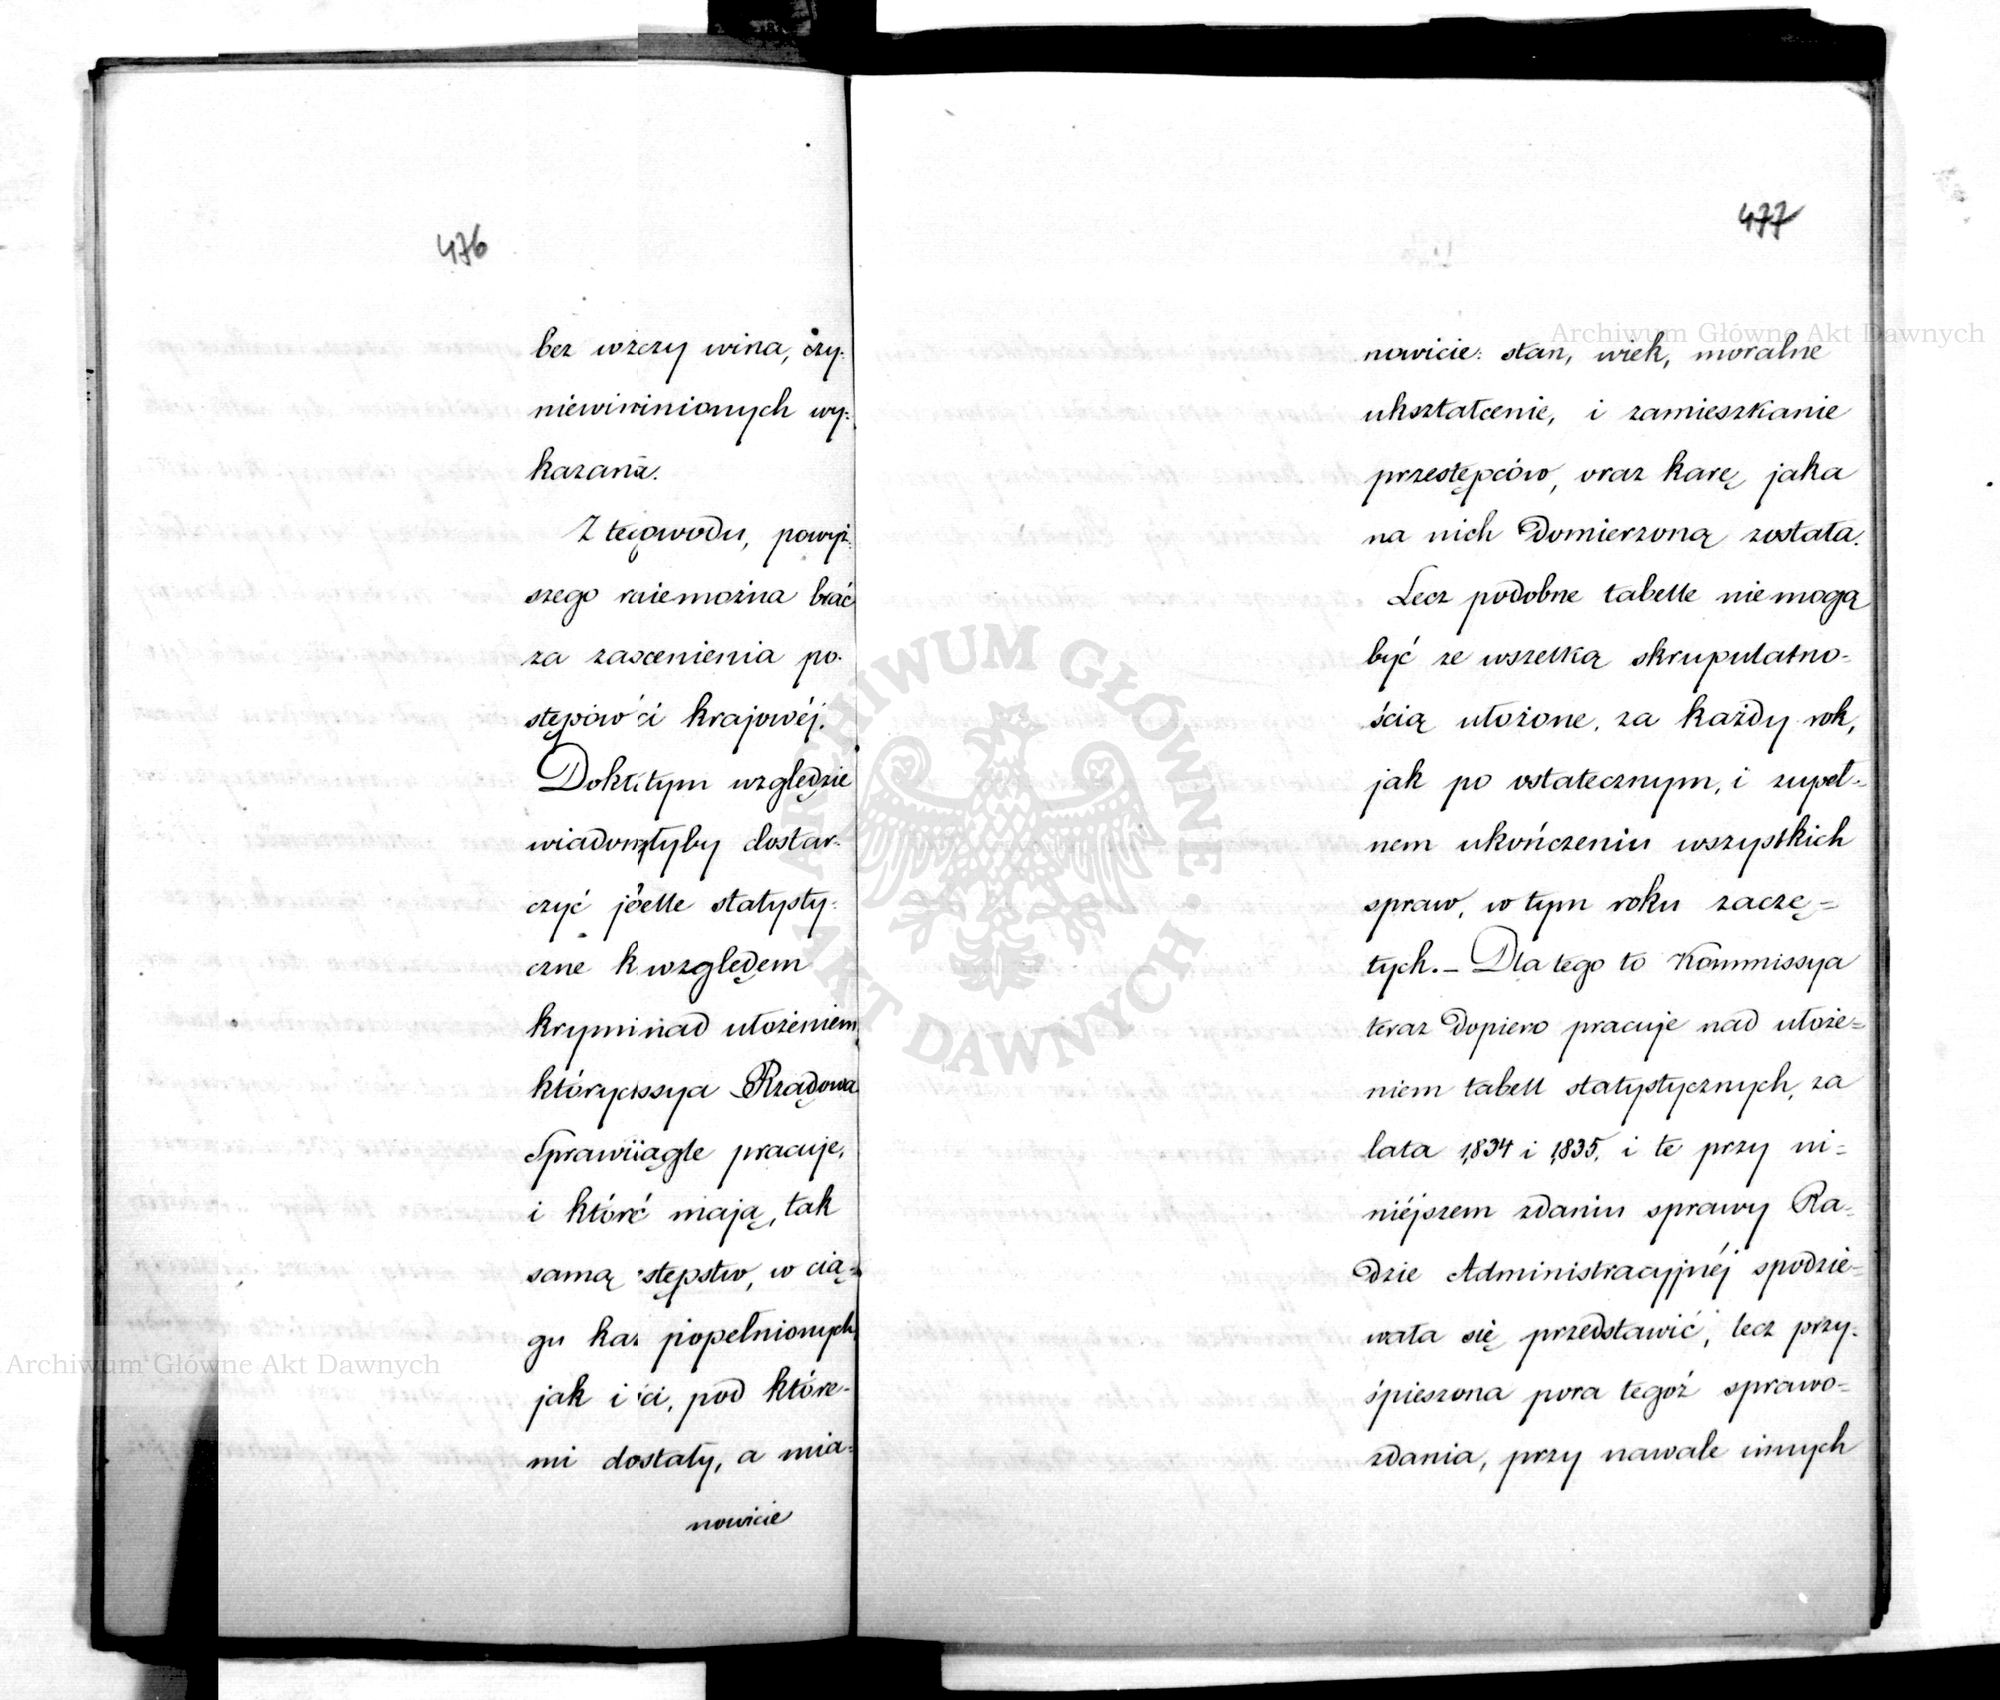 476
bez wzczy wina, czy-
niewiwinionych wy-
kazana.
Z tegowodu, powyż-
szego niemożna brać
za zaocenienia po-
stępów ci krajowéj.
Dokt tym względzie
wiadomłyby dostar-
czyć jéelle statysty-
czne k względem
krymi nad ułożeniem
którycissya Rządowa
Sprawiiągle pracuje,
i któreć mają, tak
samą stępstw, w cią-
gu kaz piopełnionych
jak i ci, pod które-
mi dostały, a mia-
nowicie
477
nowicie: stan, wiek, moralne
ukształcenie, i zamieszkanie
przestępców, oraz karę jaka
na nich domierzoną została.
Lecz podobne tabelle nie mogą
być ze wszelką skrupulatno-
ścią ułożone, za każdy rok,
jak po ostatecznym, i zupeł-
nem ukończeniu wszystkich
spraw, w tym roku zaczę-
tych. - Dla tego to Kommissya
teraz dopiero pracuje nad ułoże-
niem tabell statystycznych, za
lata 1834 i 1835, i te przy ni-
niéjszem zdaniu sprawy Ra-
dzie Administracyjnéj spodzie-
wała się przedstawić, lecz przy-
śpieszona pora tegoż sprawo-
zdania, przy nawale innych
Archiwum Główne Akt Dawnych
Archiwum Główne Akt Dawnych
ARCHIWUM GŁÓWNE AKT DAWNYCH